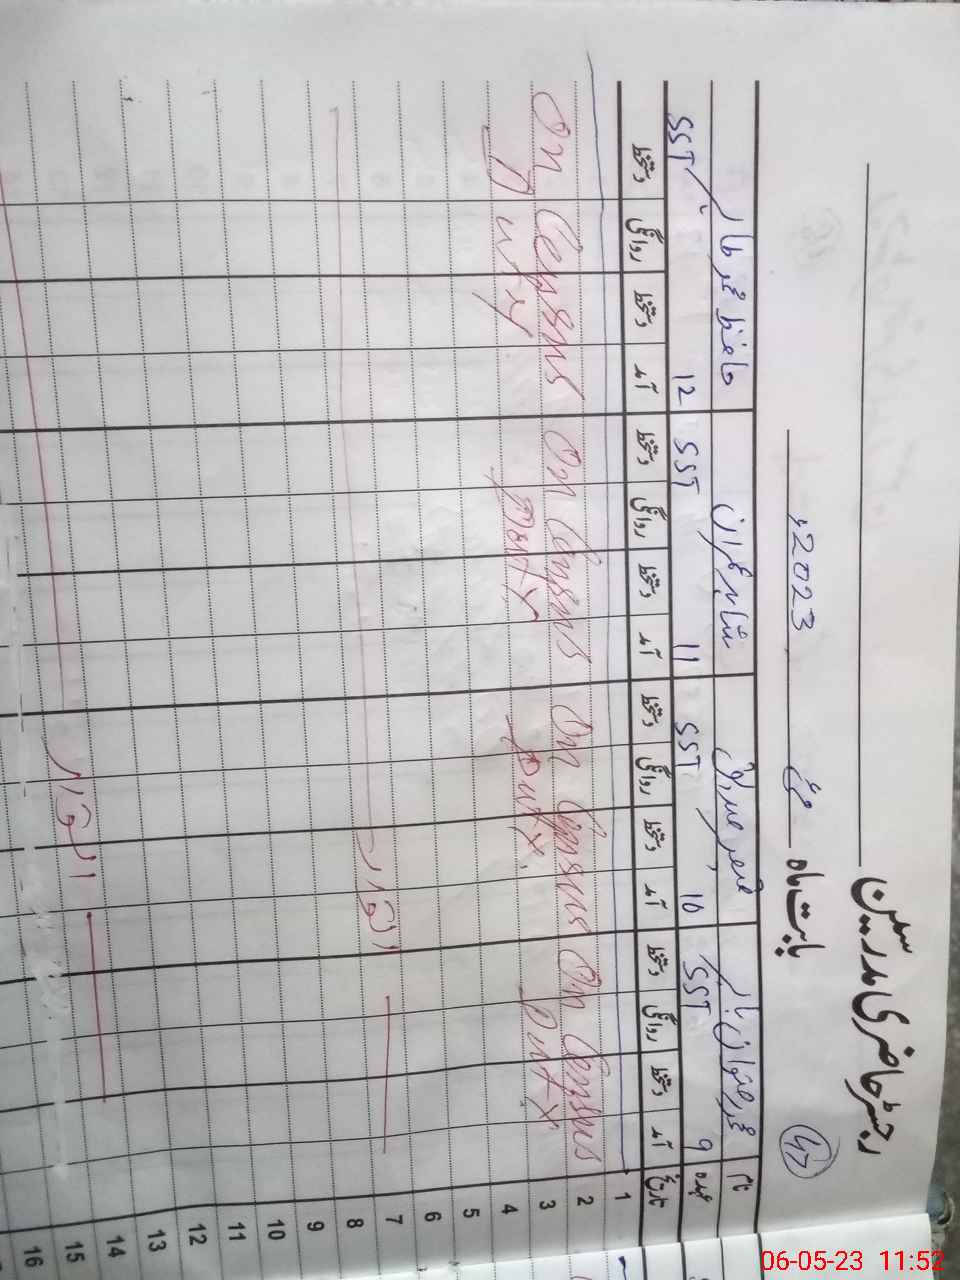 رجسٹر حاضری مدرسین
بابت ماہ مئی 2023ء
47
نام
عہدہ SST 9 SST 10 SST 11 SST 12
تاریخ آمد دستخط روانگی دستخط آمد دستخط روانگی دستخط آمد دستخط روانگی دستخط آمد دستخط روانگی دستخط
1
2
3 On Census On Census On Census On Census
4 Duty Duty Duty Duty
5
6
7 اتوار
8
9
10
11
12
13
14 اتوار
15
16
06-05-23 11:52